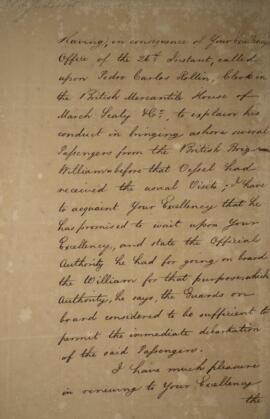 Having, in consequence of Your Excellency's
Office of the 26th Instant, called
upon Pedro Carlos Hollin, Clerk in
the British Mercantile House of
March Sealy & Co., to explain his
conduct in bringing ashore several
Passengers from the British Brig
William before that Vessel had
received the usual Visits; I have
to acquaint Your Excellency that he
has promised to wait upon Your
Excellency, and state the Official
Authority he had for going on board
the William for that purpose, which
Authority, he says, the Guards on
board considered to be sufficient to
permit the immediate disembarkation
of the said Passengers.
I have much pleasure
in renewing to Your Excellency
the